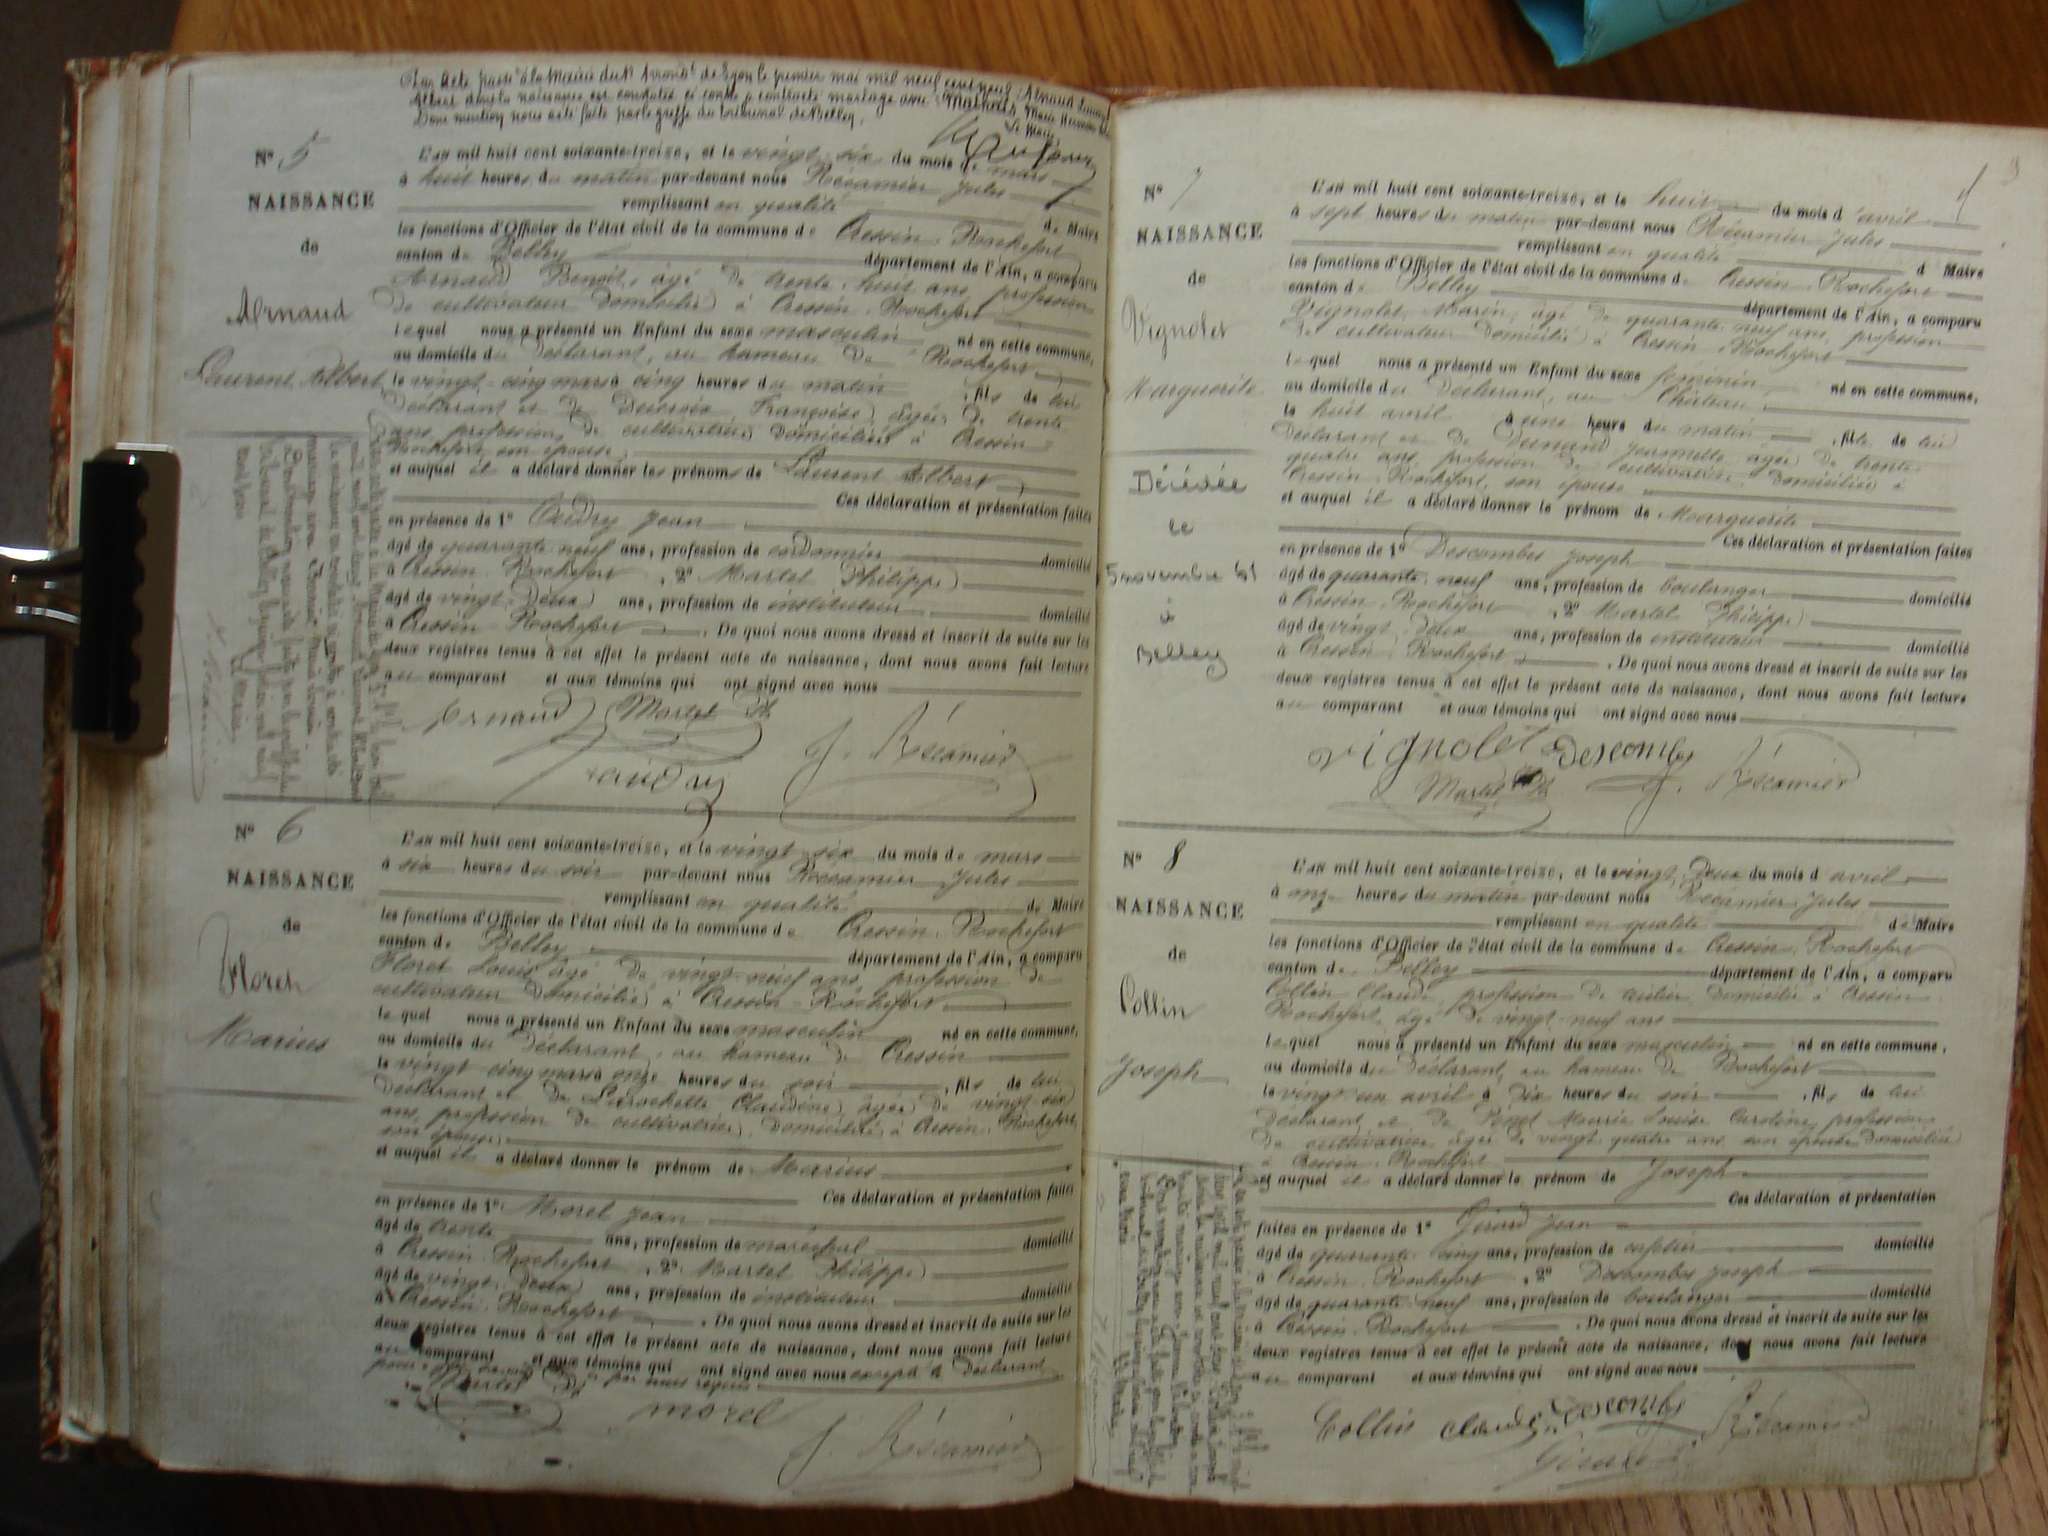 Par acte passé à la Mairie du Arrondt de Lyon le premier mai mil neuf cent neuf, Arnaud Laurent
Albert dont la naissance est constatée ci contre a contracté mariage avec Marie
Dont mention nous a été faite par le greffe du tribunal de Belley.
Le Maire
N° 5
NAISSANCE
de
Arnaud
Laurent Albert
L'an mil huit cent soixante-treize, et le vingt-six du mois de mars
à huit heures du matin par-devant nous Récamier Jules
remplissant en qualité de Maire
les fonctions d'Officier de l'état civil de la commune de Cressin-Rochefort
canton de Belley département de l'Ain, a comparu
Arnaud Benoît, âgé de trente-huit ans, profession
de cultivateur domicilié à Cressin-Rochefort
lequel nous a présenté un Enfant du sexe masculin né en cette commune,
au domicile du déclarant, au hameau de Rochefort
le vingt-cinq mars à cinq heures du matin, fils de lui
déclarant et de Ducroix Françoise, âgée de trente
ans, profession de cultivatrice, domiciliée à Cressin-
Rochefort, son épouse
et auquel il a déclaré donner les prénoms de Laurent Albert
Ces déclaration et présentation faites
en présence de 1° Jean
âgé de quarante-neuf ans, profession de cordonnier domicilié
à Cressin-Rochefort, 2° Martel Philippe
âgé de vingt-deux ans, profession de instituteur domicilié
à Cressin-Rochefort. De quoi nous avons dressé et inscrit de suite sur les
deux registres tenus à cet effet le présent acte de naissance, dont nous avons fait lecture
au comparant et aux témoins qui ont signé avec nous
Arnaud Martel Ph
J. Récamier
N° 6
NAISSANCE
de
Floret
Marius
L'an mil huit cent soixante-treize, et le vingt-six du mois de mars
à six heures du soir par-devant nous Récamier Jules
remplissant en qualité de Maire
les fonctions d'Officier de l'état civil de la commune de Cressin-Rochefort
canton de Belley département de l'Ain, a comparu
Floret Louis, âgé de vingt-neuf ans, profession de
cultivateur domicilié à Cressin-Rochefort
lequel nous a présenté un Enfant du sexe masculin né en cette commune,
au domicile du déclarant, au hameau de Cressin
le vingt-cinq mars à onze heures du soir, fils de lui
déclarant et de Larochette Claudine, âgée de vingt-six
ans, profession de cultivatrice, domiciliée à Cressin-Rochefort,
son épouse,
et auquel il a déclaré donner le prénom de Marius
Ces déclaration et présentation faites
en présence de 1° Morel Jean
âgé de trente ans, profession de maréchal domicilié
à Cressin-Rochefort, 2° Martel Philippe
âgé de vingt-deux ans, profession de instituteur domicilié
à Cressin-Rochefort. De quoi nous avons dressé et inscrit de suite sur les
deux registres tenus à cet effet le présent acte de naissance, dont nous avons fait lecture
au comparant et aux témoins qui ont signé avec nous excepté le déclarant
pour ne par nous requis
Martel Ph morel
J. Récamier
N° 7
NAISSANCE
de
Vignolet
Marguerite
Décédée
le
5 novembre
à
Belley
L'an mil huit cent soixante-treize, et le huit du mois d'avril
à sept heures du matin par-devant nous Récamier Jules
remplissant en qualité d Maire
les fonctions d'Officier de l'état civil de la commune de Cressin-Rochefort
canton de Belley département de l'Ain, a comparu
Vignolet Marin, âgé de quarante-neuf ans, profession
de cultivateur domicilié à Cressin-Rochefort
lequel nous a présenté un Enfant du sexe féminin né en cette commune,
au domicile du déclarant, au Château,
le huit avril à une heure du matin, fille de lui
déclarant et de Dunand Jeannette âgée de trente-
quatre ans, profession de cultivatrice, domiciliée à
Cressin-Rochefort, son épouse
et auquel il a déclaré donner le prénom de Marguerite
Ces déclaration et présentation faites
en présence de 1° Descombes Joseph
âgé de quarante-neuf ans, profession de boulanger domicilié
à Cressin-Rochefort, 2° Martel Philippe
âgé de vingt-deux ans, profession de instituteur domicilié
à Cressin-Rochefort. De quoi nous avons dressé et inscrit de suite sur les
deux registres tenus à cet effet le présent acte de naissance, dont nous avons fait lecture
au comparant et aux témoins qui ont signé avec nous
Vignolet Descombes
Martel Ph J. Récamier
N° 8
NAISSANCE
de
Collin
Joseph
L'an mil huit cent soixante-treize, et le vingt-deux du mois d avril
à onze heures du matin par-devant nous Récamier Jules
remplissant en qualité de Maire
les fonctions d'Officier de l'état civil de la commune de Cressin-Rochefort
canton de Belley département de l'Ain, a comparu
Collin Claude, profession de domicilié à Cressin-
Rochefort, âgé de vingt-neuf ans
lequel nous a présenté un Enfant du sexe masculin né en cette commune,
au domicile du déclarant, au hameau de Rochefort
le vingt-un avril à dix heures du soir, fils de lui
déclarant, et de Marie Louise Caroline, profession
de cultivatrice âgée de vingt-quatre ans, son épouse domiciliée
à Cressin-Rochefort
et auquel il a déclaré donner le prénom de Joseph
Ces déclaration et présentation
faites en présence de 1° Girard Jean
âgé de quarante-cinq ans, profession de domicilié
à Cressin-Rochefort, 2° Descombes Joseph
âgé de quarante-neuf ans, profession de boulanger domicilié
à Cressin-Rochefort. De quoi nous avons dressé et inscrit de suite sur les
deux registres tenus à cet effet le présent acte de naissance, dont nous avons fait lecture
au comparant et aux témoins qui ont signé avec nous
Collin Claude Descombes Récamier
Girard